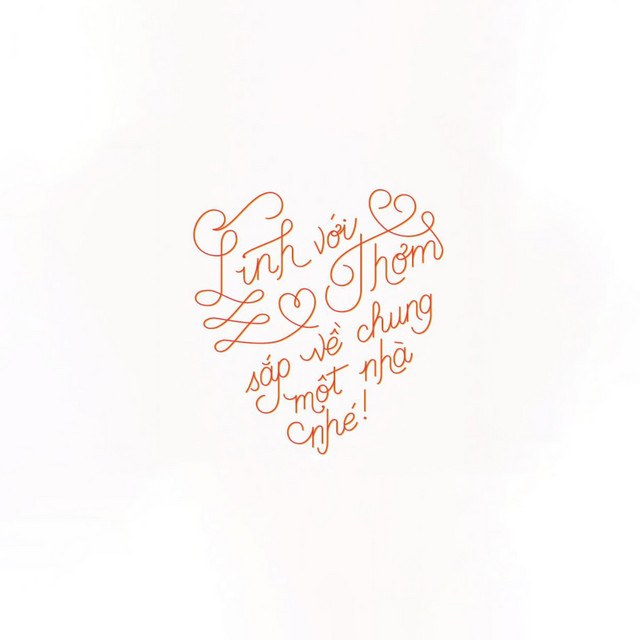 Linh với
Thơm
sắp về chung
một nhà
nhé!